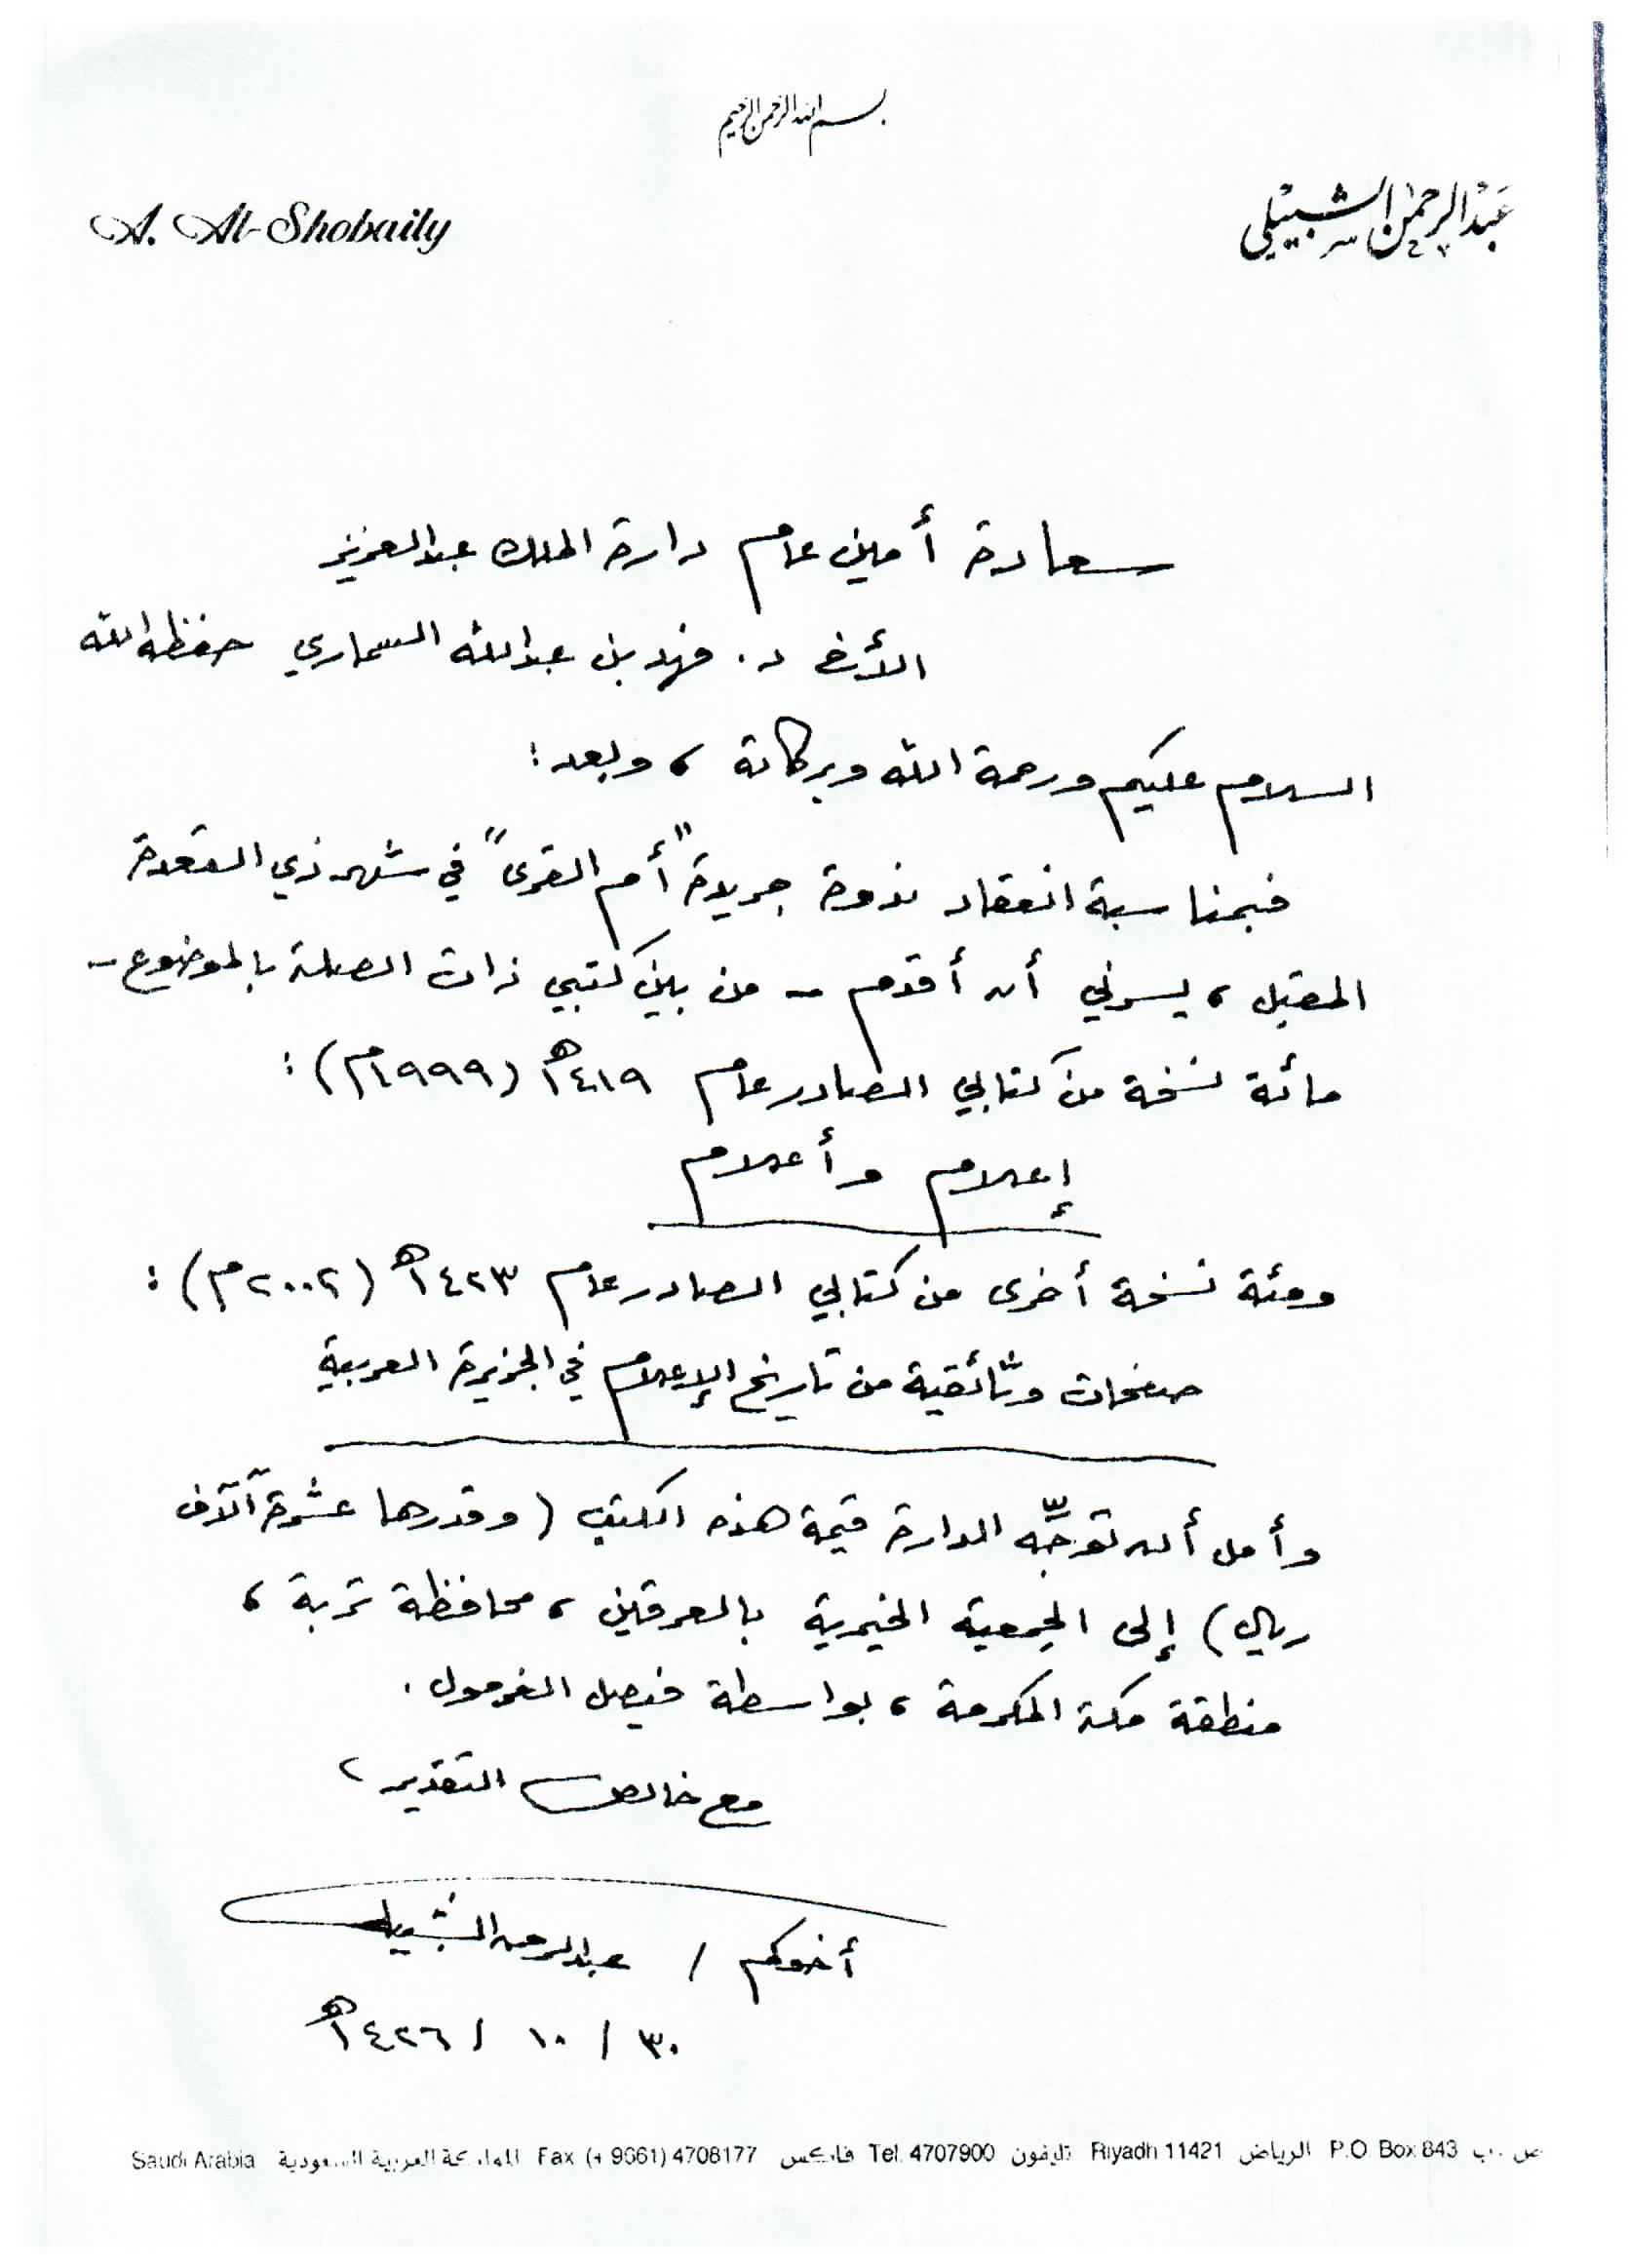 بسم الله الرحمن الرحيم
عبدالرحمن الشبيلي
A. Al-Shobaily
سعادة أمين عام دارة الملك عبدالعزيز
الأخ د. فهد بن عبدالله السماري حفظه الله
السلام عليكم ورحمة الله وبركاته ، وبعد :
فبمناسبة انعقاد ندوة جريدة "أم القرى" في شهر ذي القعدة
المقبل ، يسرني أن أقدم – من بين كتبي ذات الصلة بالموضوع –
مائة نسخة من كتابي الصادر عام ١٤١٩هـ (١٩٩٩م) :
إعلام وأعلام
ومئة نسخة أخرى من كتابي الصادر عام ١٤٢٣هـ (٢٠٠٢م) :
صفحات وثائقية من تاريخ الإعلام في الجزيرة العربية
وأمل أن توجِّه الدارة قيمة هذه الكتب (وقدرها عشرة آلآف
ريال) إلى الجمعية الخيرية بالعرقين ، محافظة تربة ،
منطقة مكة المكرمة ، بواسطة فيصل الغرمول .
مع خالص التقدير ،
أخوكم / عبدالرحمن الشبيلي
٣٠ / ١٠ / ١٤٢٦هـ
ص . ب P.O. Box 843 الرياض Riyadh 11421 تليفون Tel. 4707900 فاكس Fax (+ 9661) 4708177 المملكة العربية السعودية Saudi Arabia